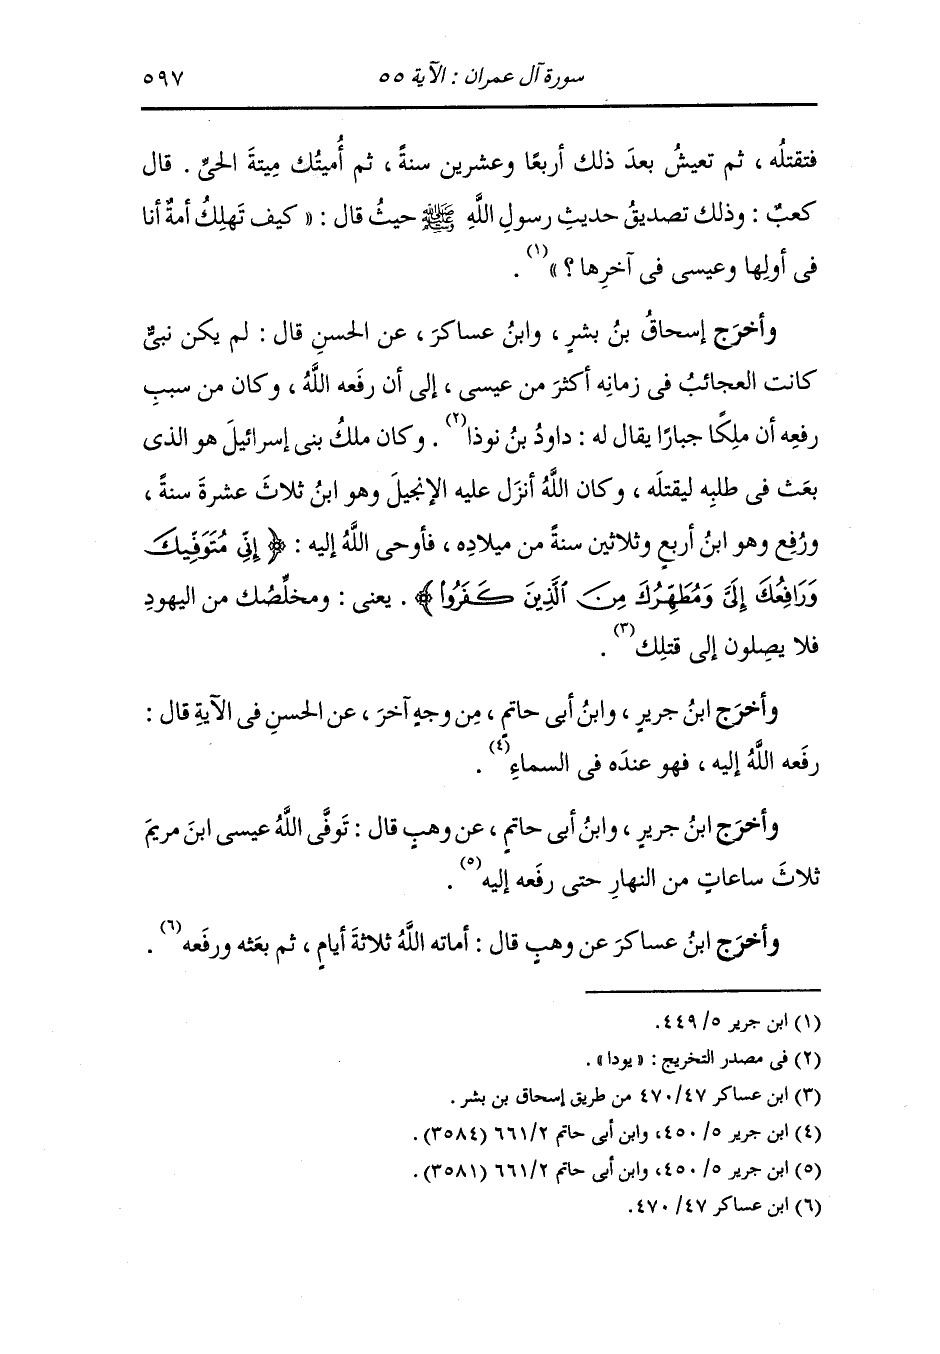 سورة آل عمران : الآية ٥٥ ٥٩٧
فتقتلُه ، ثم تعيشُ بعدَ ذلك أربعًا وعشرين سنةً ، ثم أُميتُك مِيتةَ الحيِّ . قال
كعبٌ : وذلك تصديقُ حديثِ رسولِ اللَّهِ ﷺ حيثُ قال : « كيف تَهلِكُ أمةٌ أنا
فى أولِها وعيسى فى آخرِها ؟ »(١) .
وأخرَج إسحاقُ بنُ بشرٍ ، وابنُ عساكرَ ، عن الحسنِ قال : لم يكن نبىٌّ
كانت العجائبُ فى زمانِه أكثرَ من عيسى ، إلى أن رفَعه اللَّهُ ، وكان من سببِ
رفعِه أن ملِكًا جبارًا يقال له : داودُ بنُ نوذا(٢) . وكان ملكُ بنى إسرائيلَ هو الذى
بعَث فى طلبِه ليقتلَه ، وكان اللَّهُ أنزَل عليه الإنجيلَ وهو ابنُ ثلاثَ عشرةَ سنةً ،
ورُفِع وهو ابنُ أربعٍ وثلاثين سنةً من ميلادِه ، فأوحى اللَّهُ إليه : ﴿ إِنِّى مُتَوَفِّيكَ
وَرَافِعُكَ إِلَىَّ وَمُطَهِّرُكَ مِنَ ٱلَّذِينَ كَفَرُوا۟ ﴾ . يعنى : ومخلِّصُك من اليهودِ
فلا يصِلون إلى قتلِك(٣) .
وأخرَج ابنُ جريرٍ ، وابنُ أبى حاتمٍ ، مِن وجهٍ آخرَ ، عن الحسنِ فى الآيةِ قال :
رفَعه اللَّهُ إليه ، فهو عندَه فى السماءِ(٤) .
وأخرَج ابنُ جريرٍ ، وابنُ أبى حاتمٍ ، عن وهبٍ قال : تَوفَّى اللَّهُ عيسى ابنَ مريمَ
ثلاثَ ساعاتٍ من النهارِ حتى رفَعه إليه(٥) .
وأخرَج ابنُ عساكرَ عن وهبٍ قال : أماته اللَّهُ ثلاثةَ أيامٍ ، ثم بعَثه ورفَعه(٦) .
(١) ابن جرير ٥/ ٤٤٩.
(٢) فى مصدر التخريج : « يودا » .
(٣) ابن عساكر ٤٧/ ٤٧٠ من طريق إسحاق بن بشر .
(٤) ابن جرير ٥/ ٤٥٠، وابن أبى حاتم ٢/ ٦٦١ (٣٥٨٤) .
(٥) ابن جرير ٥/ ٤٥٠، وابن أبى حاتم ٢/ ٦٦١ (٣٥٨١) .
(٦) ابن عساكر ٤٧/ ٤٧٠.